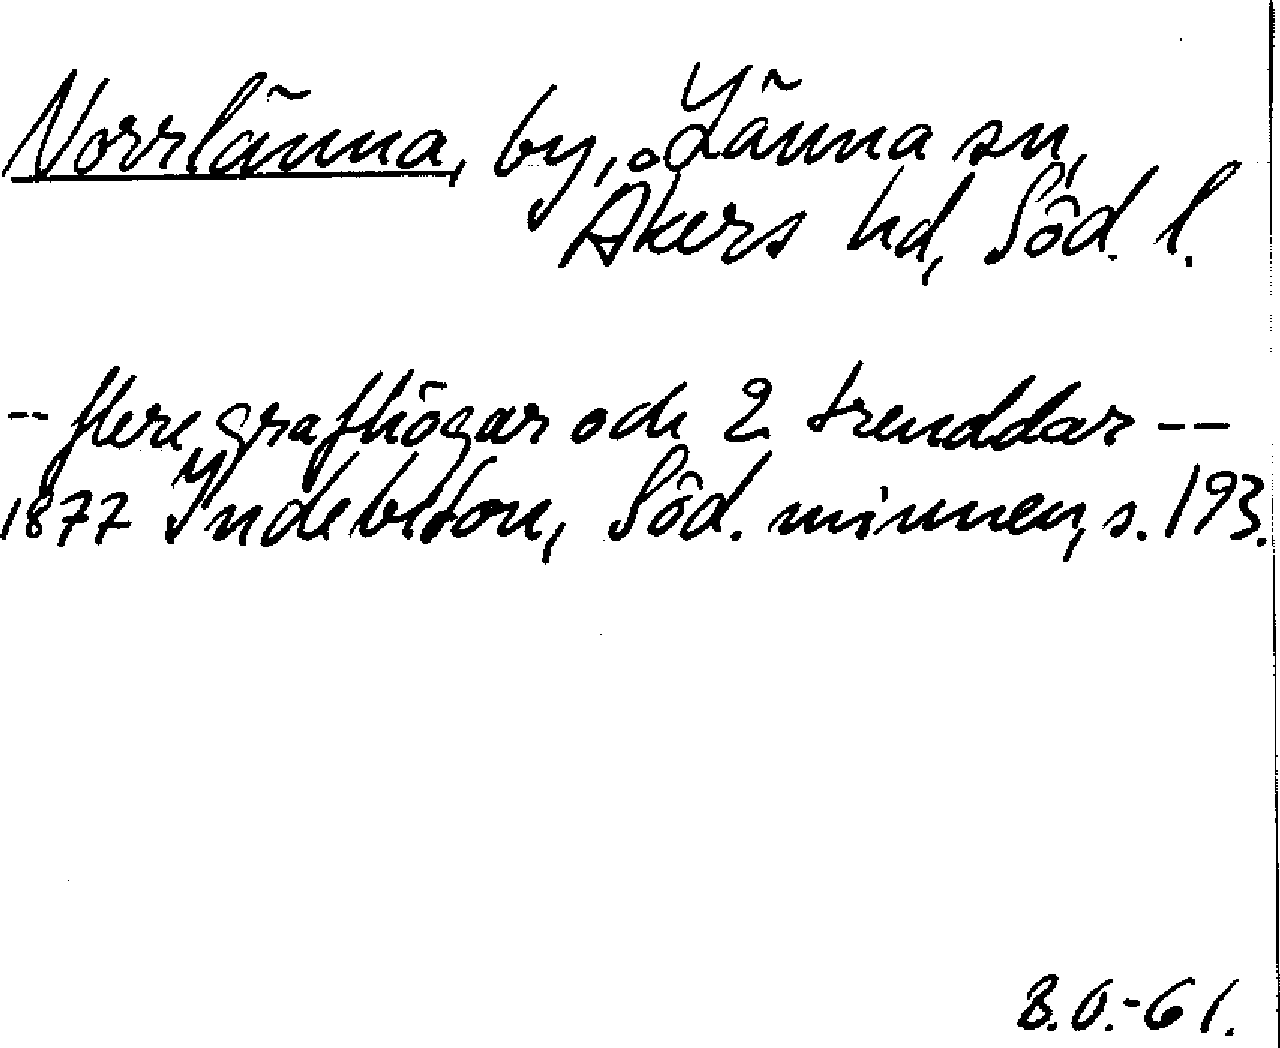 Norrlänna, by, Länna sn,
Åkers hd, Söd. l.
-- flere grafhögar och 2 treuddar --
1877 Indebetou, Söd. minnen, s. 193.
B.O.-61.